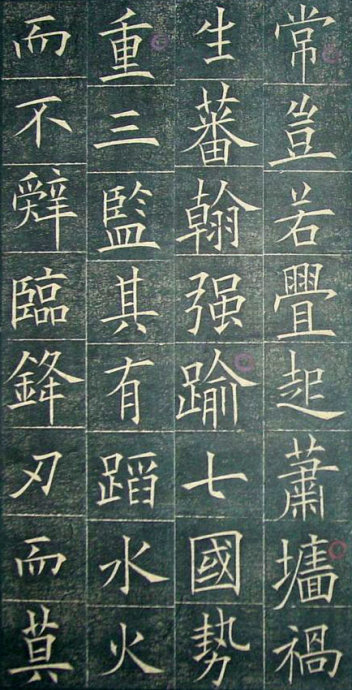 常豈若舋起蕭墻禍
生蕃翰强踰七國勢
重三監其有蹈水火
而不辭臨鋒刃而莫